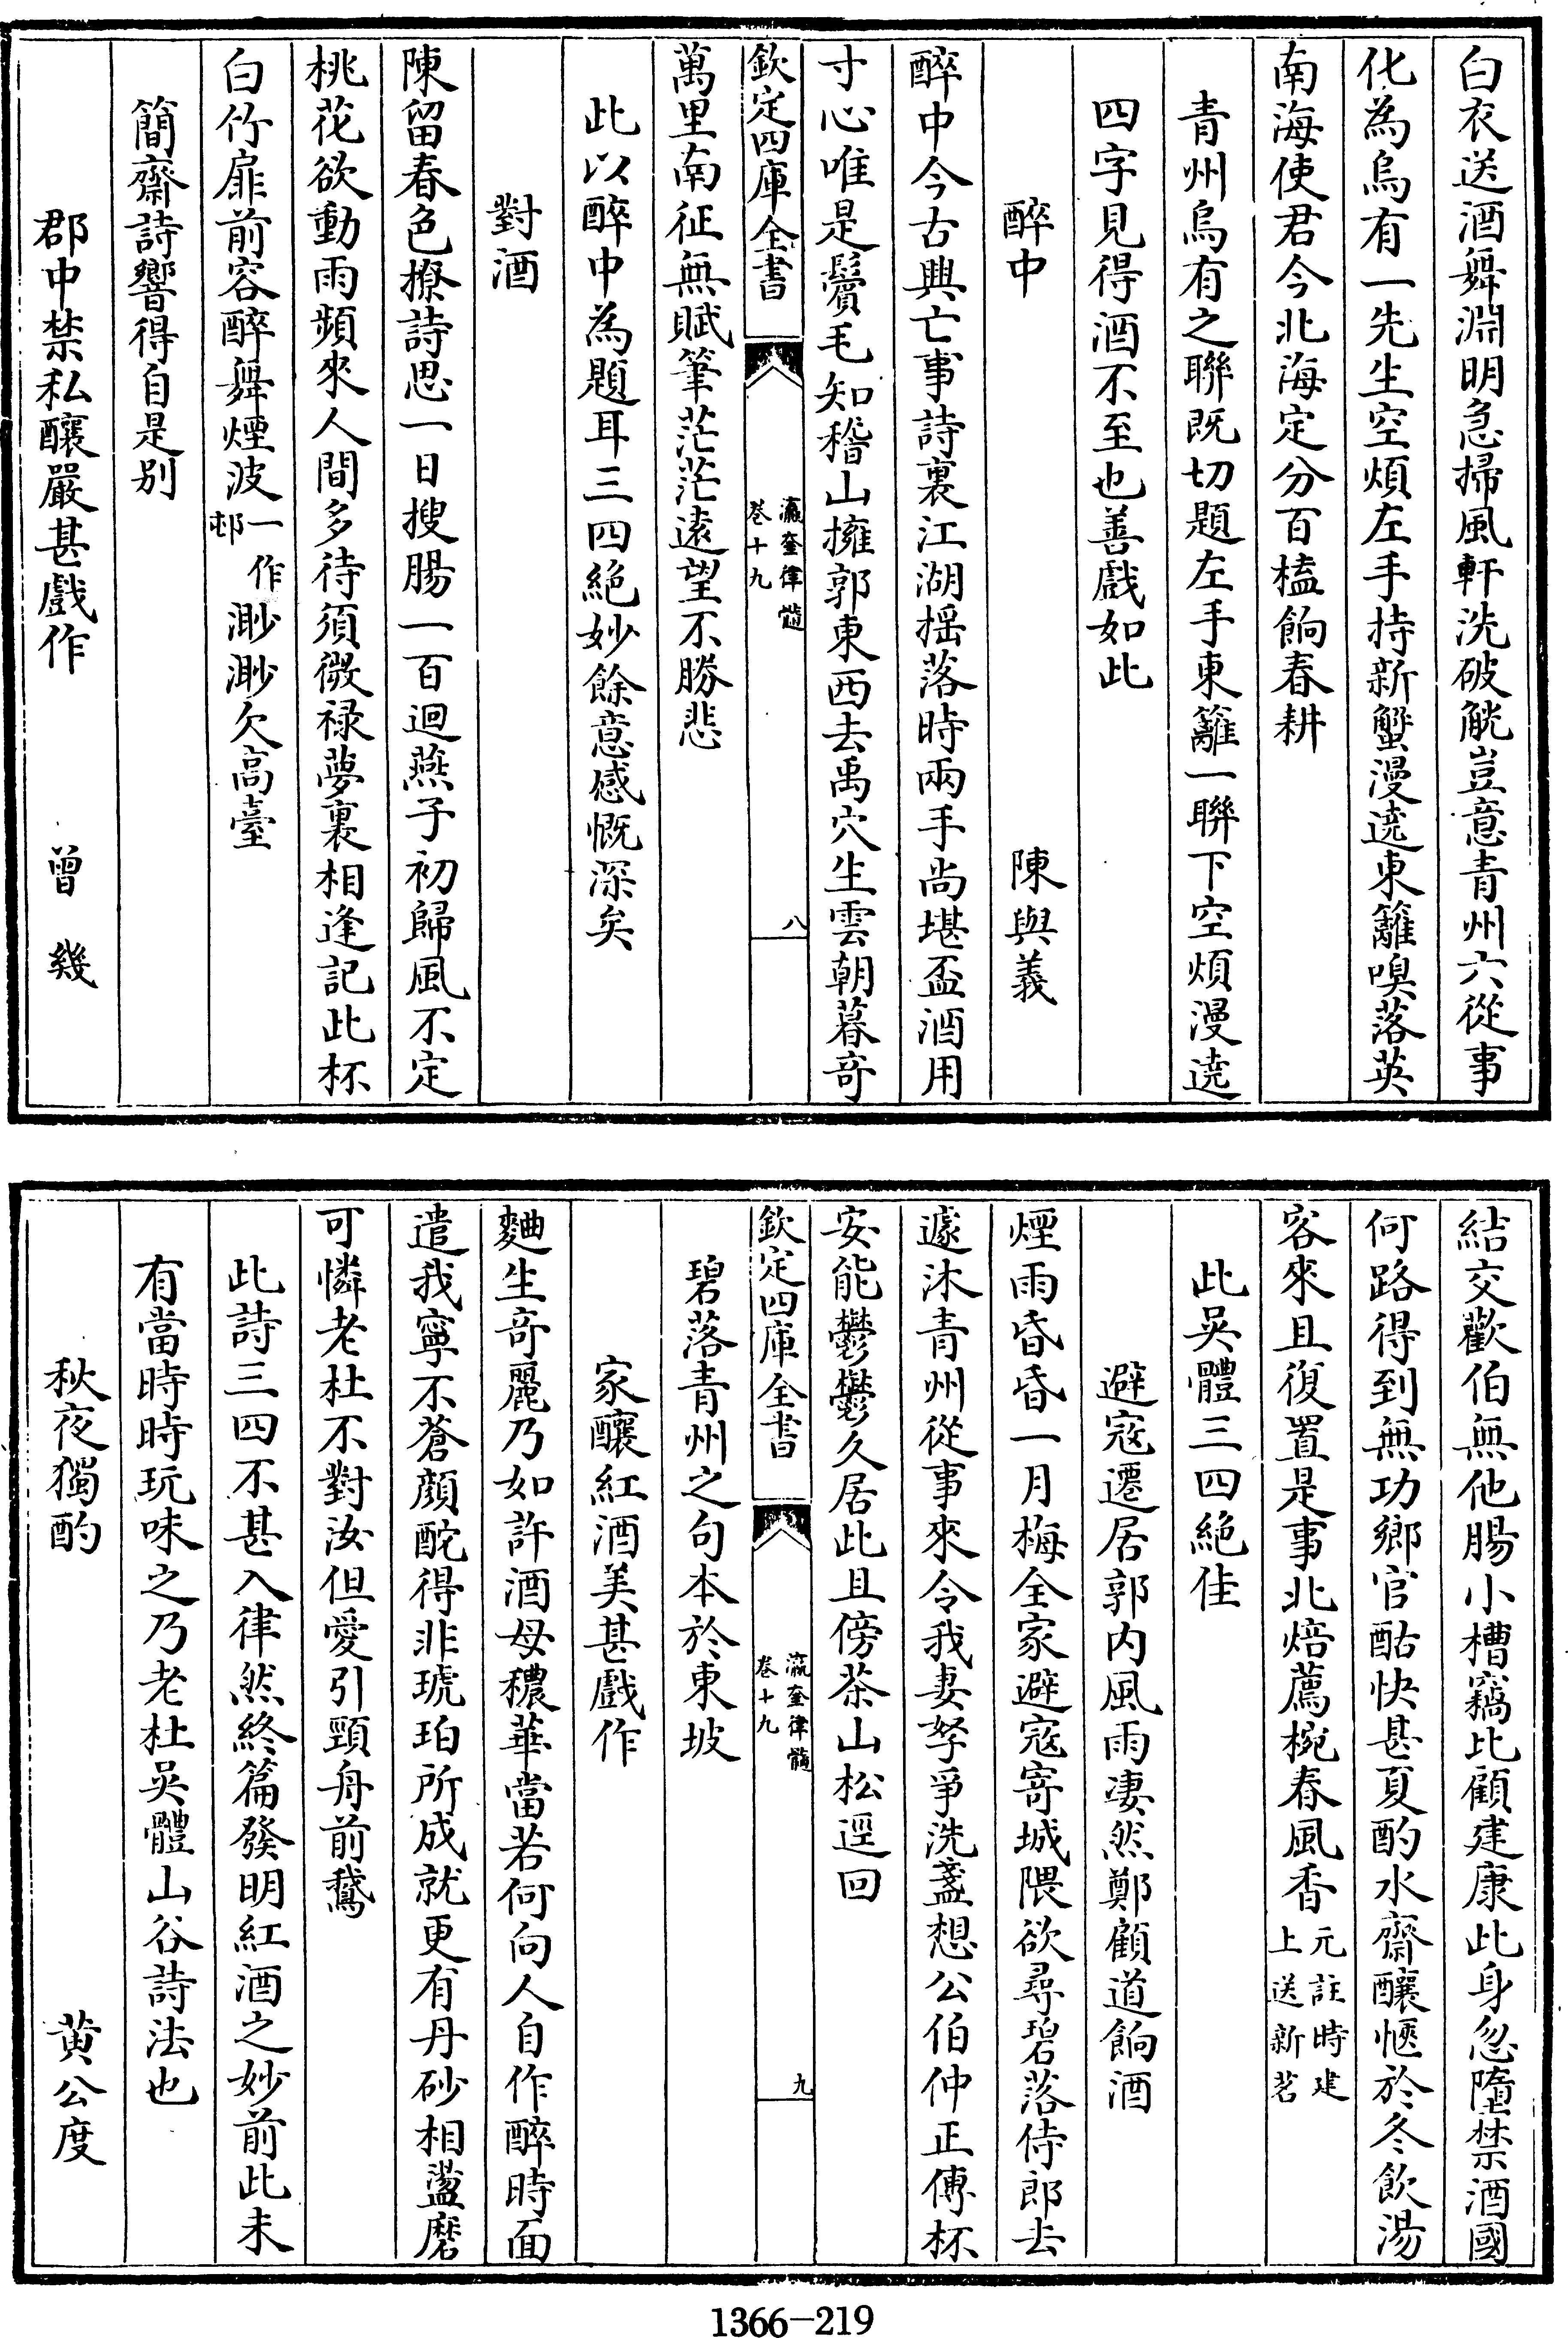 白衣送酒舞淵明急掃風軒洗破觥豈意青州六從事
化為烏有一先生空煩左手持新蟹漫遶東籬嗅落英
南海使君今北海定分百榼餉春耕
青州烏有之聯既切題左手東籬一聯下空煩漫遶
四字見得酒不至也善戲如此
醉中　陳與義
醉中今古興亡事詩裏江湖揺落時兩手尚堪盃酒用
寸心唯是鬢毛知稽山擁郭東西去禹穴生雲朝暮竒
欽定四庫全書　瀛奎律髓　卷十九　八
萬里南征無賦筆茫茫遠望不勝悲
此以醉中為題耳三四絶妙餘意感慨深矣
對酒
陳留春色撩詩思一日搜腸一百迴燕子初歸風不定
桃花欲動雨頻來人間多待須微禄夢裏相逢記此杯
白竹扉前容醉舞煙波一作邨渺渺欠高臺
簡齋詩響得自是别
郡中禁私釀嚴甚戲作　曾幾
結交歡伯無他腸小槽竊比顧建康此身忽墮禁酒國
何路得到無功鄉官酤快甚夏酌水齋釀愜於冬飲湯
客來且復置是事北焙薦椀春風香元註時建上送新茗
此吳體三四絶佳
避寇遷居郭内風雨凄然鄭顧道餉酒
煙雨昏昏一月梅全家避寇寄城隈欲尋碧落侍郎去
遽沐青州從事來令我妻孥爭洗盞想公伯仲正傳杯
安能鬱鬱久居此且傍茶山松逕回
欽定四庫全書　瀛奎律髓　卷十九　九
碧落青州之句本於東坡
家釀紅酒美甚戲作
麯生竒麗乃如許酒母穠華當若何向人自作醉時面
遣我寧不蒼顔酡得非琥珀所成就更有丹砂相盪磨
可憐老杜不對汝但愛引頸舟前鵝
此詩三四不甚入律然終篇發明紅酒之妙前此未
有當時時玩味之乃老杜吳體山谷詩法也
秋夜獨酌　黄公度
1366-219